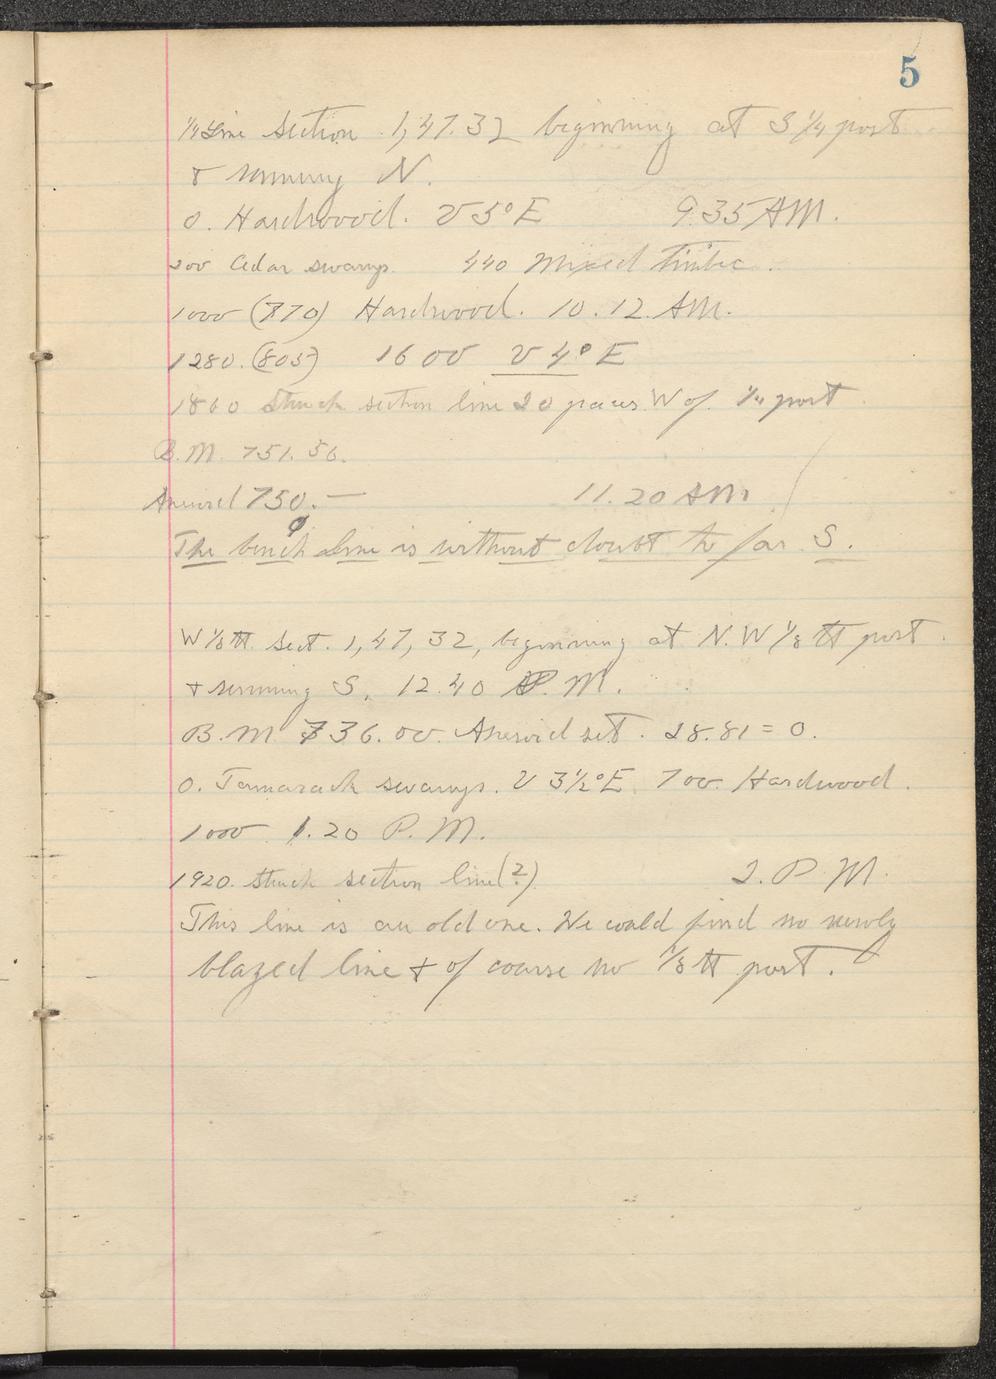 5
1/4 Line Section 1, 47. 32 beginning at S 1/4 post
& running N.
0. Hardwood. V 5° E 9.35 AM.
200 Cedar swamp. 440 Mixed timber.
1000 (770) Hardwood. 10.12. AM.
1280. (805) 1600 V 4° E
1860 Struck section line 20 paces W of 1/4 post
B.M. 751.56.
Aneroid 750.—  11.20 AM.
The bench line is without doubt to far S.
W 1/8 th Sect. 1, 47, 32, beginning at N.W 1/8 th post.
& running S. 12.40 P. M.
B.M. 736.00. Aneroid set. 28.81 = 0.
0. Tamarack swamp. V 3 1/2° E. 700 Hardwood.
1000 1.20 P. M.
1920. Struck section line (?) 2. P M.
This line is an old one. We could find no newly
blazed line & of course no 1/8 th post.